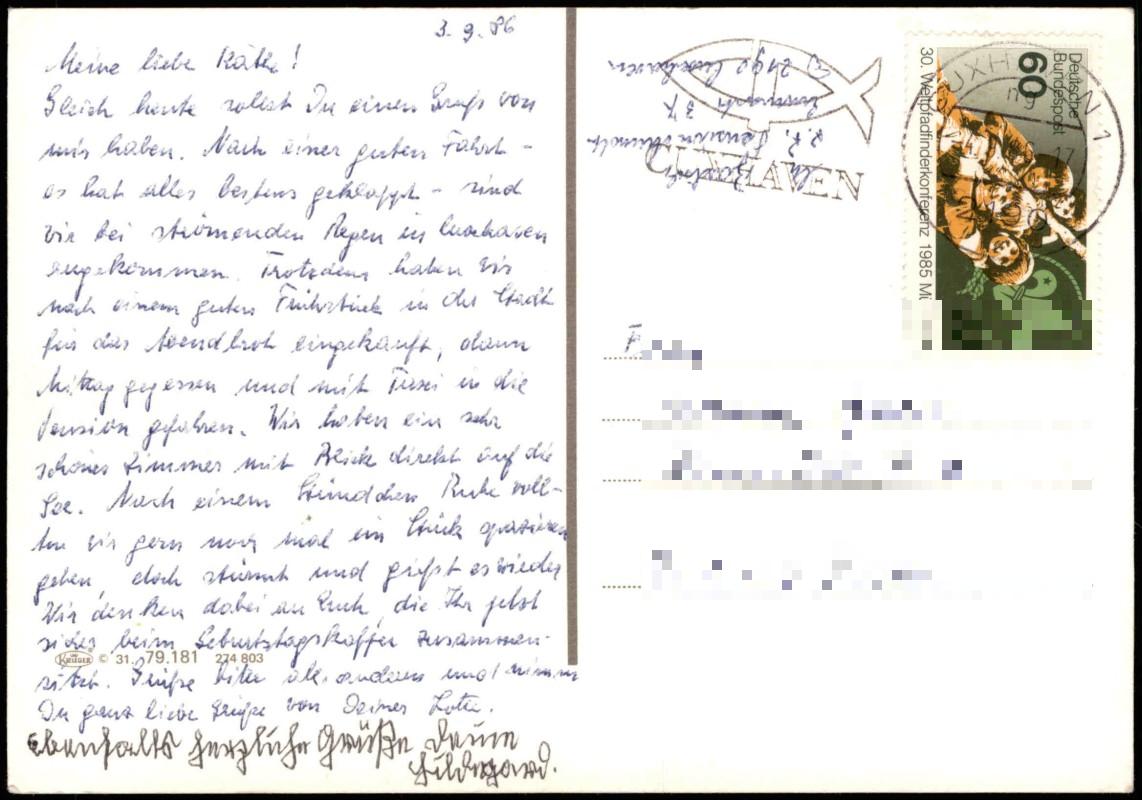 3.9.86
Meine liebe Käthe!
Gleich heute sollst Du einen Gruß von
mir haben. Nach einer guten Fahrt -
es hat alles bestens geklappt - sind
wir bei strömenden Regen in Cuxhaven
angekommen. Trotzdem haben wir
nach einem guten Frühstück in der Stadt
für das Abendbrot eingekauft, dann
Mittag gegessen und mit Taxi in die
Pension gefahren. Wir haben ein sehr
schönes Zimmer mit Blick direkt auf die
See. Nach einem Stündchen Ruhe woll-
ten wir gern noch mal ein Stück spazieren
gehen, doch stürmt und gießt es wieder
Wir denken dabei an Euch, die Ihr jetzt
sicher beim Geburtstagskaffee zusammen-
sitzt. Grüße bitte alle anderen und nimm
Du ganz liebe Grüße von Deiner Lotte.
Ebenfalls herzliche Grüße Deine
Hildegard.
KRÜGER © 31. 79.181 274 803
2190 Cuxhaven
CUXHAVEN
CUXHAVEN 1
Deutsche
Bundespost
60
30. Weltpfadfinderkonferenz 1985